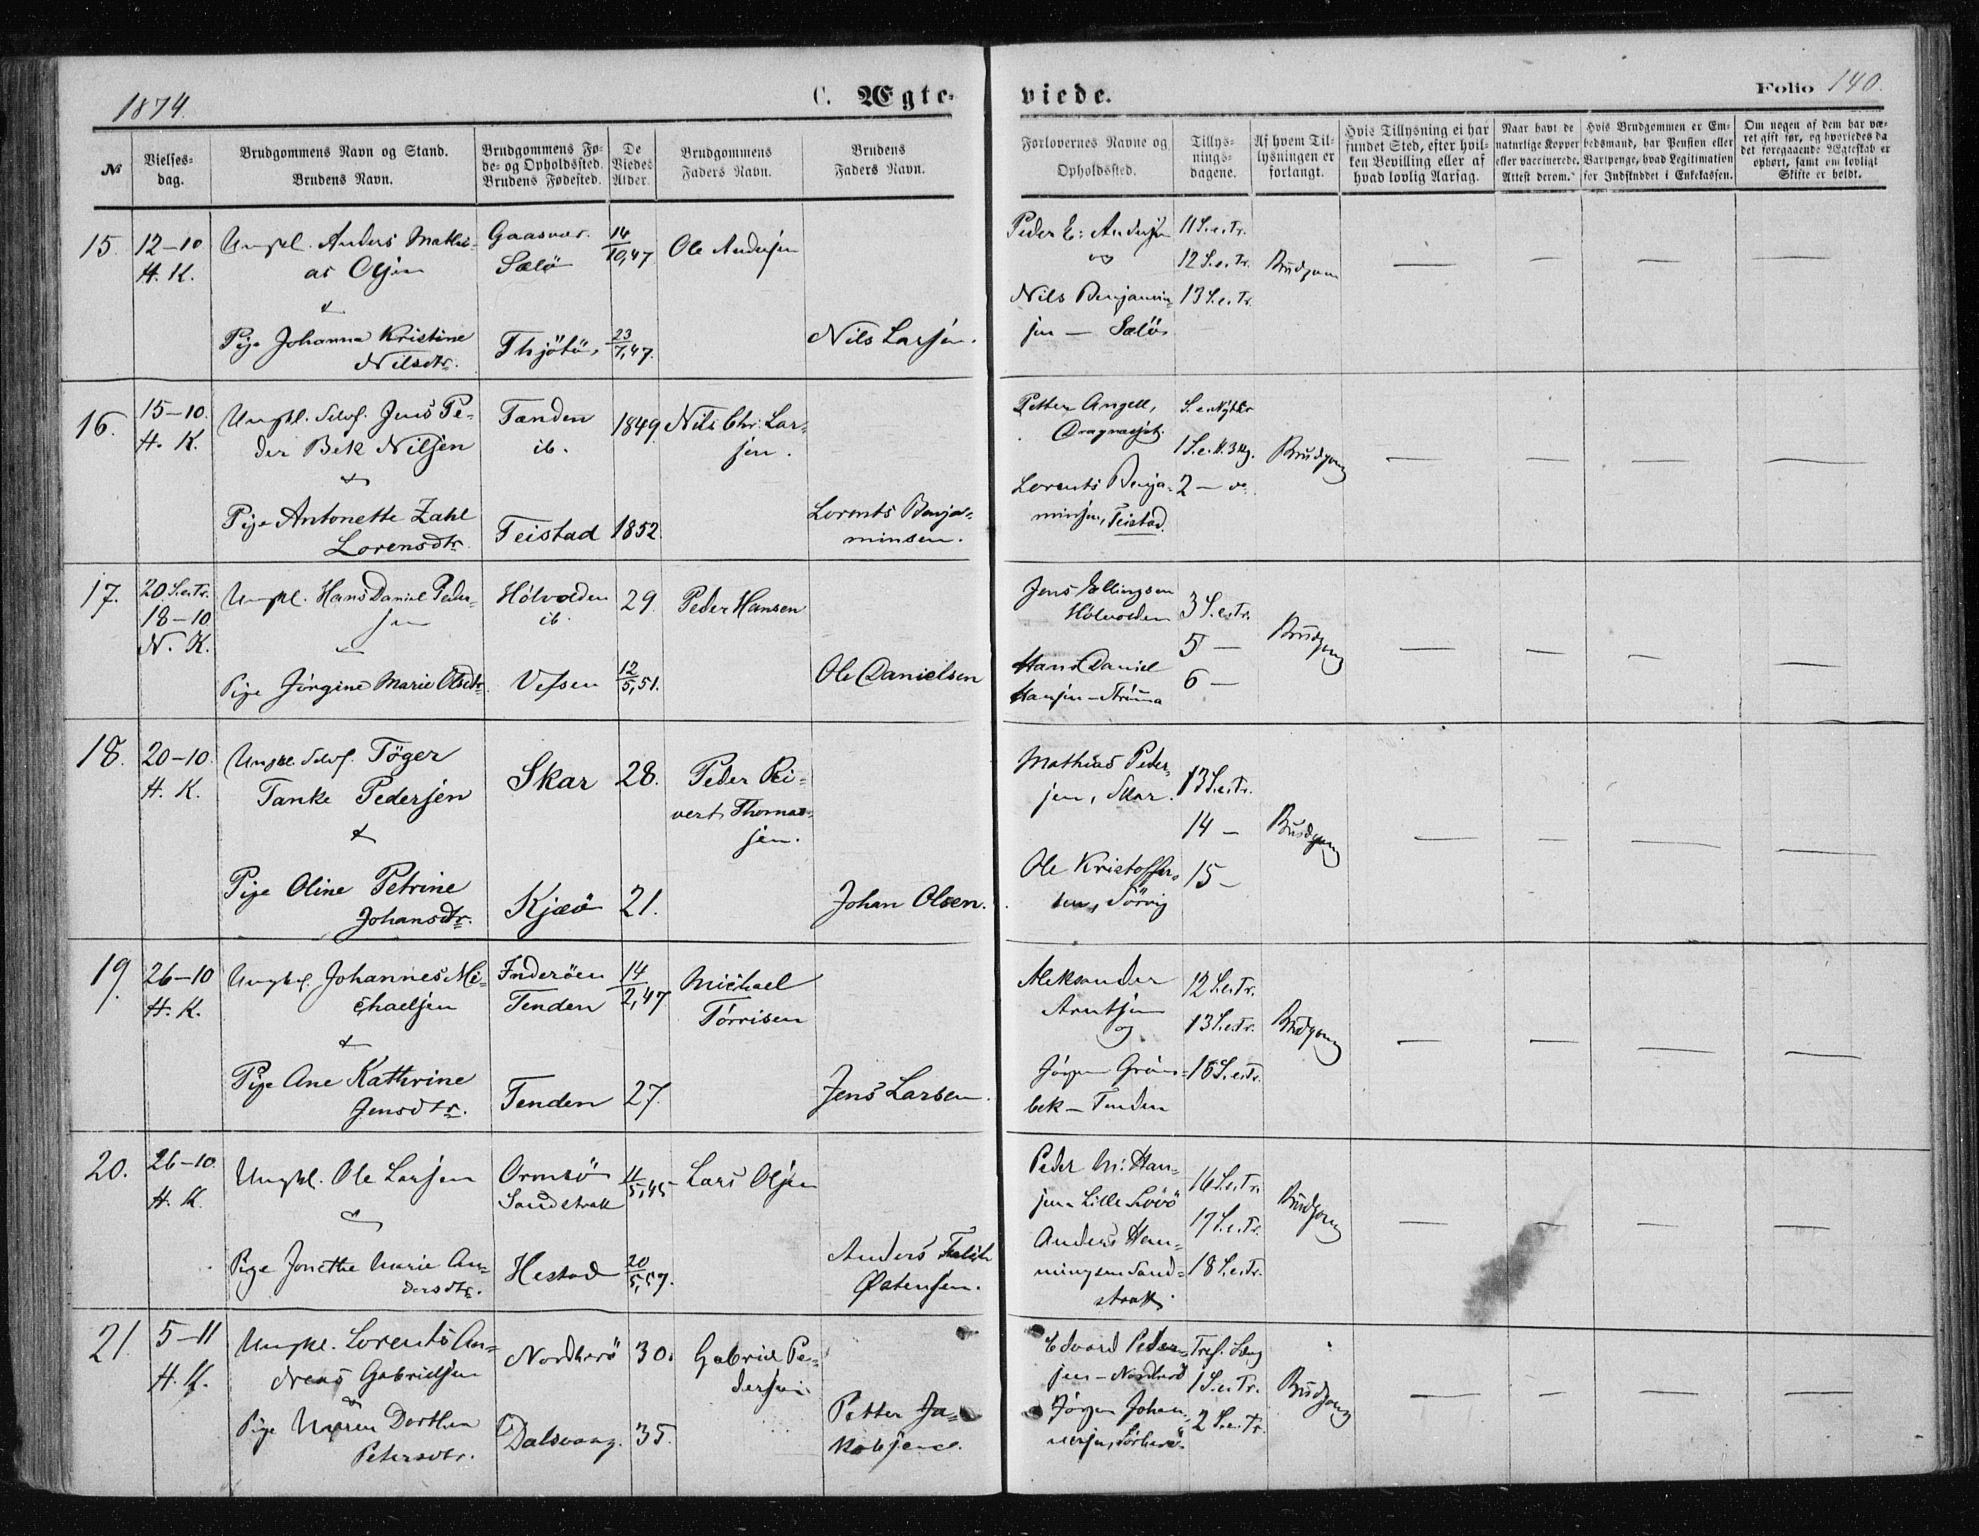 1874.
C. Ægte-
viede.
Folio 140.
No
Vielses-
dag.
Brudgommens Navn og Stand.
Brudens Navn.
Brudgommens Fø-
de- og Opholdssted.
Brudens Fødested.
De
Viedes
Alder.
Brudgommens
Faders Navn.
Brudens
Faders Navn.
Forlovernes Navne og
Opholdssted.
Tillys-
nings-
dagene.
Af hvem Til-
lysningen er
forlangt.
Hvis Tillysning ei har
fundet Sted, efter hvil-
ken Bevilling eller af
hvad lovlig Aarsag.
Naar havt de
naturlige Kopper
eller vaccinerede.
Attest derom.
Hvis Brudgommen er Em-
bedsmand, har Pension eller
Vartpenge, hvad Legitimation
for Indskuddet i Enkekassen.
Om nogen af dem har væ-
ret gift før, og hvorledes da
det foregaaende Ægteskab er
ophørt, samt om lovligt
Skifte er holdt.
15.
12-10
H. K.
Ungkl. Anders Mathi-
as Olsen
&
Pige Johanna Kristine
Nilsdtr.
Gaasvær.
Sælø
Thjötö,
14/10,47
23/7,47.
Ole Andersen
Nils Larsen.
Peder E: Andersen
og
Nils Benjamin-
sen — Sælö
11 S.e.Tr.
12 S.e.Tr.
13 S.e.Tr.
Brudgom
16.
15-10.
H. K.
Ungkl. Selvf. Jens Pe-
der Bek Nilsen
&
Pige Antonette Zahl
Lorensdtr.
Tænden
ib.
Teistad
1849.
1852.
Nils Chr. Lar-
sen.
Lorents Benja-
minsen.
Petter Angell,
Lorents Benja-
minsen, Teistad.
S. e. Nytår
1 S.e.H.3Kg.
2 — do
Brudgom
17.
20 S.e.Tr.
18-10
N. K.
Ungkl. Hans Daniel Peder-
sen
Pige Jørgine Marie Olsdtr.
Holvolden
ib.
Vefsen
29.
12/5,51.
Peder Hansen
Ole Danielsen
Jens Ellingsen
Holvolden
Hans Daniel
Hansen —
3 S.e.Tr.
5 —
6 —
Brudgom
18.
20-10
H. K.
Ungkl. Selvf. Töger
Tanke Pedersen
&
Pige Oline Petrine
Johansdtr.
Skar
Kjæö
28.
21.
Peder Ri-
vert Thomas-
sen.
Johan Olsen.
Mathias Peder-
sen, Skar.
Ole Kristoffer-
sen, Sörvig
13 S.e.Tr.
14 —
15 —
Brudgom
19.
26-10
H. K.
Ungkl. Johannes Mi-
chaelsen
&
Pige Ane Kathrine
Jensdtr.
Inderöen
Tenden
Tenden
14/2,47
27.
Michael
Törrisen
Jens Larsen.
Aleksander
Arntsen
og
Jörgen Grön-
bek — Tenden
12 S.e.Tr.
13 S.e.Tr.
15 S.e.Tr.
Brudgom
20.
26-10.
H. K.
Ungkl. Ole Larsen
&
Pige Jonette Marie An-
dersdtr.
Sandstrak
Hestad
11/5,45
20/5,57.
Lars Olsen
Anders
Østensen.
Peder M: Han-
sen Lille
Anders Hen-
ningsen Sand-
strak
16 S.e.Tr.
17 S.e.Tr.
18 S.e.Tr.
Brudgom
21.
5-11
H. K.
Ungkl. Lorents An-
dreas Gabrielsen
&
Pige Maren Dorthea
Petersdtr.
Nordherö
Dalsvaag.
30.
35.
Gabriel Pe-
dersen.
Petter Ja-
kobsen.
Edvard Peder-
sen — Nordherö
Jörgen Johan-
nessen, Sörherö
Tref. Søng
1 S.e.Tr.
2 S.e.Tr.
Brudgom